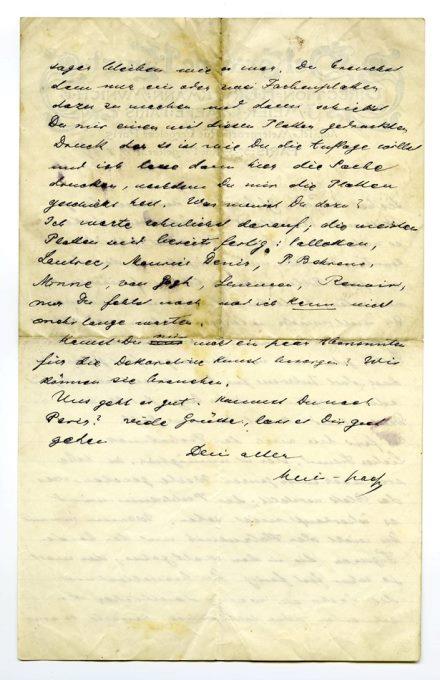 sagen bleiben wie es war. Du brauchst
dann nur ein oder zwei Farbenplatten
dazu zu machen und dann schickst
Du mir einen mit diesen Platten gedruckten
Druck der so ist wie Du die Auflage willst
und ich lasse dann hier die Sache
drucken, nachdem Du mir die Platten
geschickt hast. Was meinst Du dazu?
Ich warte sehnlichst darauf; die meisten
Platten sind bereit fertig: Vallotton,
Lautrec, Maurice Denis, P. Behrens,
van Gogh, Renoir,
nur Du fehlst noch und ich kann nicht
mehr lange warten.
Kannst Du mir noch ein paar Abonnenten
für die Dekorative Kunst besorgen? Wir
können sie brauchen.
Uns geht es gut. Kommst Du nach
Paris? Viele Grüsse, lass es Dir gut
gehen
Dein alter
Meier-Graefe